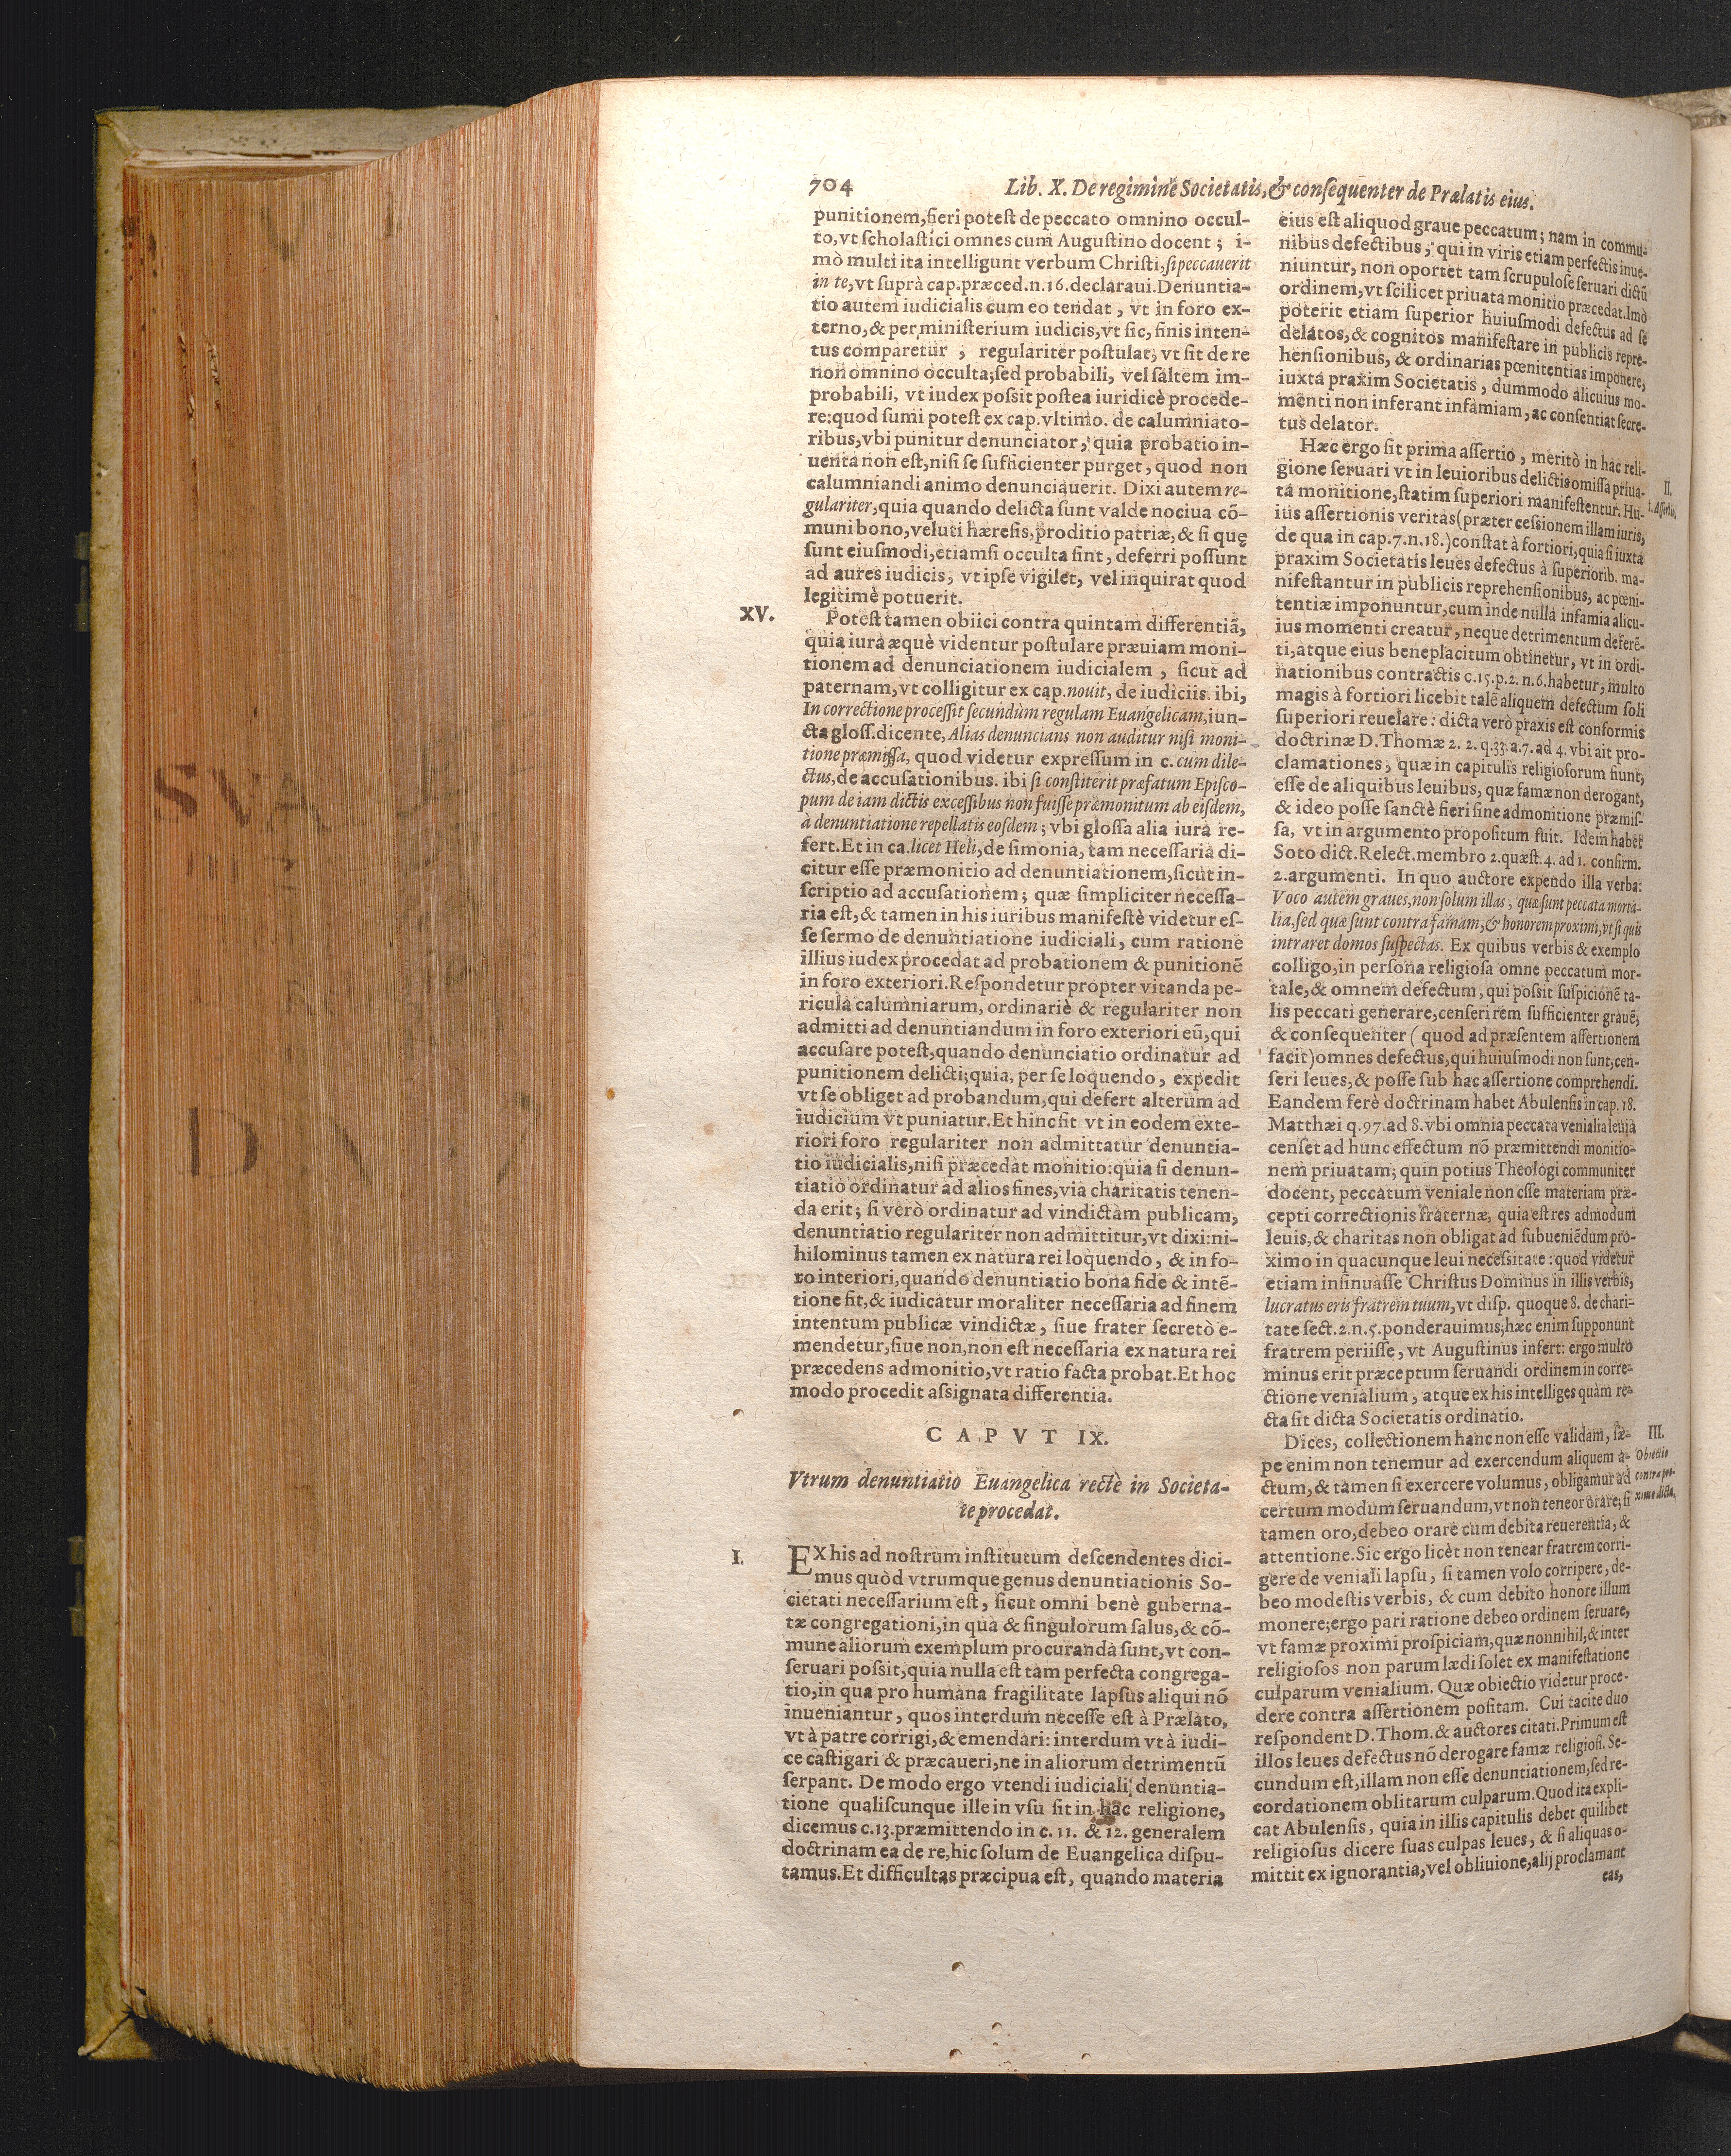 704
Lib. X. De regimine Societatis, & consequenter de Prælatis eius.
punitionem, fieri potest de peccato omnino occul-
to, vt scholastici omnes cum Augustino docent; i-
mò multi ita intelligunt verbum Christi, si peccauerit
in te, vt suprà cap. præced. n. 16. declaraui. Denuntia-
tio autem iudicialis cum eo tendat, vt in foro ex-
terno, & per ministerium iudicis, vt sic, finis inten-
tus comparetur, regulariter postulat, vt sit de re
non omnino occulta; sed probabili, vel saltem im-
probabili, vt iudex possit postea iuridicè procede-
re: quod sumi potest ex cap. vltimo. de calumniato-
ribus, vbi punitur denunciator, quia probatio in-
uenta non est, nisi se sufficienter purget, quod non
calumniandi animo denunciauerit. Dixi autem re-
gulariter, quia quando delicta sunt valde nociua cõ-
muni bono, veluti hæresis, proditio patriæ, & si quę
sunt eiusmodi, etiamsi occulta sint, deferri possunt
ad aures iudicis, vt ipse vigilet, vel inquirat quod
legitimè potuerit.
XV.
Potest tamen obiici contra quintam differentiã,
quia iura æquè videntur postulare præuiam moni-
tionem ad denunciationem iudicialem, sicut ad
paternam, vt colligitur ex cap. nouit, de iudiciis. ibi,
In correctione processit secundùm regulam Euangelicam, iun-
cta gloss. dicente, Alias denuncians non auditur nisi moni-
tione præmissa, quod videtur expressum in c. cum dile-
ctus, de accusationibus. ibi si constiterit præfatum Episco-
pum de iam dictis excessibus non fuisse præmonitum ab eisdem,
à denuntiatione repellatis eosdem; vbi glossa alia iura re-
fert. Et in ca. licet Heli, de simonia, tam necessaria di-
citur esse præmonitio ad denuntiationem, sicut in-
scriptio ad accusationem; quæ simpliciter necessa-
ria est, & tamen in his iuribus manifestè videtur es-
se sermo de denuntiatione iudiciali, cum ratione
illius iudex procedat ad probationem & punitionẽ
in foro exteriori. Respondetur propter vitanda pe-
ricula calumniarum, ordinariè & regulariter non
admitti ad denuntiandum in foro exteriori eũ, qui
accusare potest, quando denunciatio ordinatur ad
punitionem delicti; quia, per se loquendo, expedit
vt se obliget ad probandum, qui defert alterum ad
iudicium vt puniatur. Et hinc fit vt in eodem exte-
riori foro regulariter non admittatur denuntia-
tio iudicialis, nisi præcedat monitio: quia si denun-
tiatio ordinatur ad alios fines, via charitatis tenen-
da erit; si verò ordinatur ad vindictam publicam,
denuntiatio regulariter non admittitur, vt dixi: ni-
hilominus tamen ex natura rei loquendo, & in fo-
ro interiori, quando denuntiatio bona fide & intẽ-
tione fit, & iudicatur moraliter necessaria ad finem
intentum publicæ vindictæ, siue frater secretò e-
mendetur, siue non, non est necessaria ex natura rei
præcedens admonitio, vt ratio facta probat. Et hoc
modo procedit assignata differentia.
CAPVT IX.
Vtrum denuntiatio Euangelica rectè in Societa-
te procedat.
I.
EX his ad nostrum institutum descendentes dici-
mus quòd vtrumque genus denuntiationis So-
cietati necessarium est, sicut omni benè guberna-
tæ congregationi, in qua & singulorum salus, & cõ-
mune aliorum exemplum procuranda sunt, vt con-
seruari possit, quia nulla est tam perfecta congrega-
tio, in qua pro humana fragilitate lapsus aliqui nõ
inueniantur, quos interdum necesse est à Prælato,
vt à patre corrigi, & emendari: interdum vt à iudi-
ce castigari & præcaueri, ne in aliorum detrimentũ
serpant. De modo ergo vtendi iudiciali denuntia-
tione qualiscunque ille in vsu sit in hac religione,
dicemus c. 13. præmittendo in c. 11. & 12. generalem
doctrinam ea de re, hic solum de Euangelica dispu-
tamus. Et difficultas præcipua est, quando materia
eius est aliquod graue peccatum; nam in commu-
nibus defectibus, qui in viris etiam perfectis inue-
niuntur, non oportet tam scrupulose seruari dictũ
ordinem, vt scilicet priuata monitio præcedat. Imò
poterit etiam superior huiusmodi defectus ad se
delatos, & cognitos manifestare in publicis repre-
hensionibus, & ordinarias pœnitentias imponere,
iuxta praxim Societatis, dummodo alicuius mo-
menti non inferant infamiam, ac consentiat secre-
tus delator.
II.
1. Assertio.
Hæc ergo sit prima assertio, meritò in hac reli-
gione seruari vt in leuioribus delictis omissa priua-
ta monitione, statim superiori manifestentur. Hu-
ius assertionis veritas (præter cessionem illam iuris,
de qua in cap. 7. n. 18.) constat à fortiori, quia si iuxta
praxim Societatis leues defectus à superiorib. ma-
nifestantur in publicis reprehensionibus, ac pœni-
tentiæ imponuntur, cum inde nulla infamia alicu-
ius momenti creatur, neque detrimentum deferẽ-
ti, atque eius beneplacitum obtinetur, vt in ordi-
nationibus contractis c. 15. p. 2. n. 6. habetur, multo
magis à fortiori licebit talẽ aliquem defectum soli
superiori reuelare: dicta verò praxis est conformis
doctrinæ D. Thomæ 2. 2. q. 33. a. 7. ad 4. vbi ait pro-
clamationes, quæ in capitulis religiosorum fiunt,
esse de aliquibus leuibus, quæ famæ non derogant,
& ideo posse sanctè fieri sine admonitione præmis-
sa, vt in argumento propositum fuit. Idem habet
Soto dict. Relect. membro 2. quæst. 4. ad 1. confirm.
2. argumenti. In quo auctore expendo illa verba:
Voco autem graues, non solum illas, quæ sunt peccata morta-
lia, sed quæ sunt contra famam, & honorem proximi, vt si quis
intraret domos suspectas. Ex quibus verbis & exemplo
colligo, in persona religiosa omne peccatum mor-
tale, & omnem defectum, qui possit suspicionẽ ta-
lis peccati generare, censeri rem sufficienter grauẽ,
& consequenter (quod ad præsentem assertionem
facit) omnes defectus, qui huiusmodi non sunt, cen-
seri leues, & posse sub hac assertione comprehendi.
Eandem ferè doctrinam habet Abulensis in cap. 18.
Matthæi q. 97. ad 8. vbi omnia peccata venialia leuia
censet ad hunc effectum nõ præmittendi monitio-
nem priuatam; quin potius Theologi communiter
docent, peccatum veniale non esse materiam præ-
cepti correctionis fraternæ, quia est res admodum
leuis, & charitas non obligat ad subueniẽdum pro-
ximo in quacunque leui necessitate: quod videtur
etiam insinuasse Christus Dominus in illis verbis,
lucratus eris fratrem tuum, vt disp. quoque 8. de chari-
tate sect. 2. n. 5. ponderauimus; hæc enim supponunt
fratrem periisse, vt Augustinus infert: ergo multo
minus erit præceptum seruandi ordinem in corre-
ctione venialium, atque ex his intelliges quàm re-
cta sit dicta Societatis ordinatio.
III.
Obiectio
contra pro-
xime dicta.
Dices, collectionem hanc non esse validam, sæ-
pe enim non tenemur ad exercendum aliquem a-
ctum, & tamen si exercere volumus, obligamur ad
certum modum seruandum, vt non teneor orare; si
tamen oro, debeo orare cum debita reuerentia, &
attentione. Sic ergo licèt non tenear fratrem corri-
gere de veniali lapsu, si tamen volo corripere, de-
beo modestis verbis, & cum debito honore illum
monere; ergo pari ratione debeo ordinem seruare,
vt famæ proximi prospiciam, quæ nonnihil, & inter
religiosos non parum lædi solet ex manifestatione
culparum venialium. Quæ obiectio videtur proce-
dere contra assertionem positam. Cui tacite duo
respondent D. Thom. & auctores citati. Primum est
illos leues defectus nõ derogare famæ religiosi. Se-
cundum est, illam non esse denuntiationem, sed re-
cordationem oblitarum culparum. Quod ita expli-
cat Abulensis, quia in illis capitulis debet quilibet
religiosus dicere suas culpas leues, & si aliquas o-
mittit ex ignorantia, vel obliuione, alij proclamant
eas,